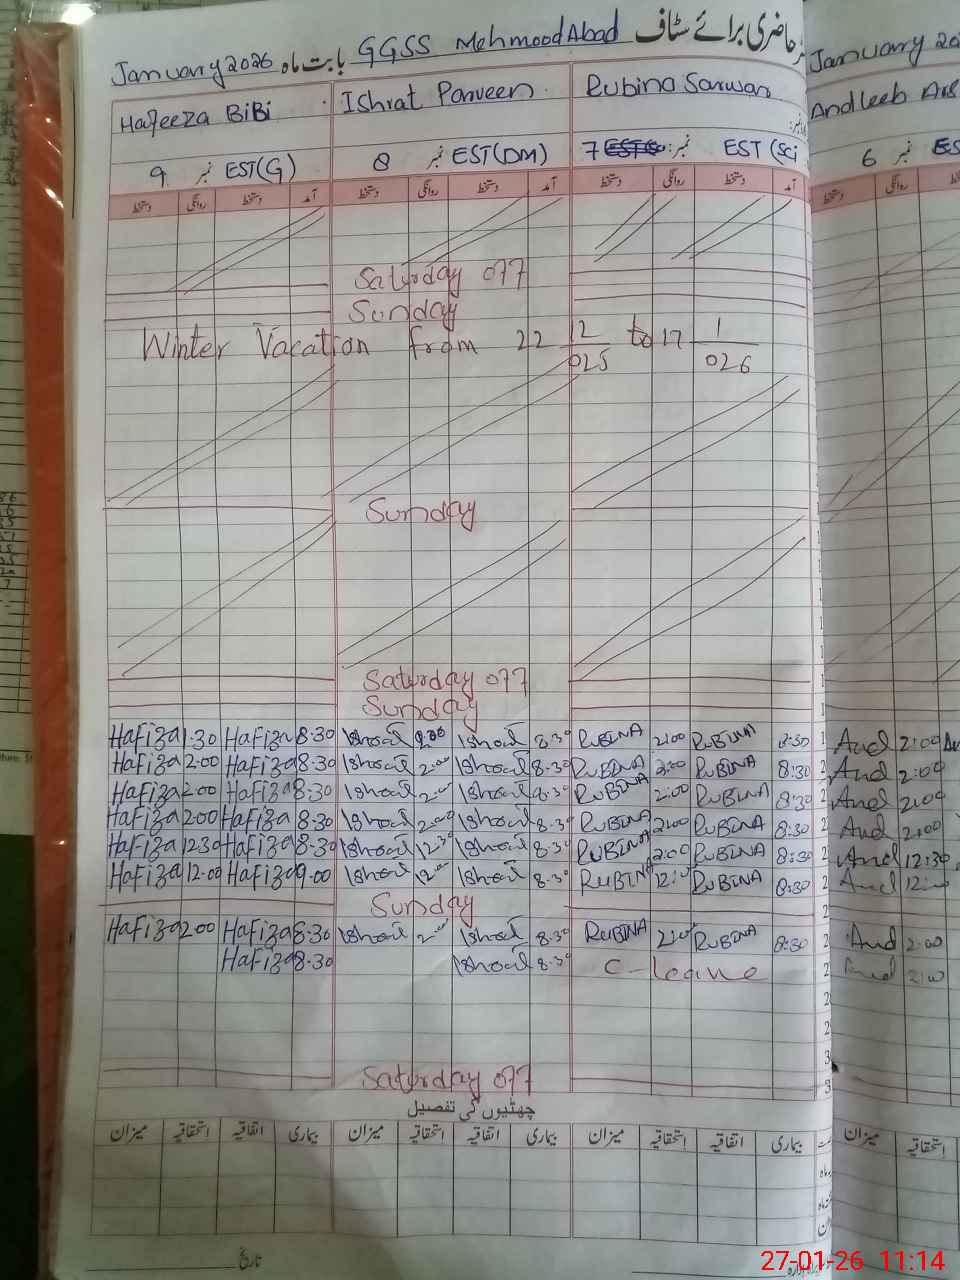 حاضری برائے سٹاف GGSS MehmoodAbad بابت ماہ January 2026
January 20
Hafeeza BiBi Ishrat Parveen Rubina Sarwar Andleeb
9 نمبر EST(G) 8 نمبر EST(DM) 7 نمبر: EST (Sci 6 نمبر ES
دستخط روانگی دستخط آمد دستخط روانگی دستخط آمد دستخط روانگی دستخط آمد دستخط روانگی
Saturday off
Sunday
Winter Vacation from 22 12/025 to 17 1/026
Sunday
Saturday off
Sunday
Hafiza 1:30 Hafiza 8:30 Ishrat Ishrat 8:30 RUBINA 2:00 RUBINA 8:30 And 2:00
Hafiza 2:00 Hafiza 8:30 Ishrat 2:00 Ishrat 8:30 RUBINA 2:00 RUBINA 8:30 And 2:00
Hafiza 2:00 Hafiza 8:30 Ishrat 2:00 Ishrat 8:30 RUBINA 2:00 RUBINA 8:30 And 2:00
Hafiza 2:00 Hafiza 8:30 Ishrat 2:00 Ishrat 8:30 RUBINA 2:00 RUBINA 8:30 And 2:00
Hafiza 12:30 Hafiza 8:30 Ishrat 12:30 Ishrat 8:30 RUBINA 2:00 RUBINA 8:30 And 12:30
Hafiza 12:00 Hafiza 9:00 Ishrat 12:00 Ishrat 8:30 RUBINA 12:00 RUBINA 8:30 And 12:00
Sunday
Hafiza 2:00 Hafiza 8:30 Ishrat 2:00 Ishrat 8:30 RUBINA 2:00 RUBINA 8:30 And 2:00
Hafiza 8:30 Ishrat 8:30 C-leave And 2:00
Saturday off
چھٹیوں کی تفصیل
میزان استحقاقیہ اتفاقیہ بیماری میزان استحقاقیہ اتفاقیہ بیماری میزان استحقاقیہ اتفاقیہ بیماری میزان استحقاقیہ
تاریخ
27-01-26 11:14